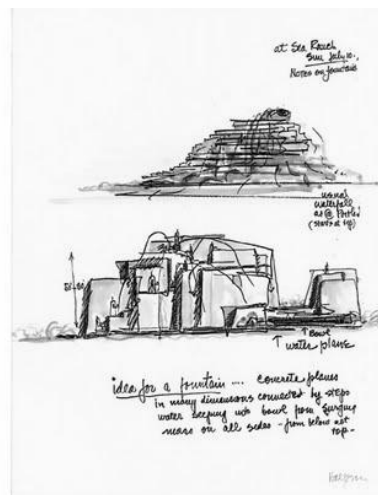 at Sea Ranch
Sun July 10.
Notes on fountain
usual
waterfall
as @ Portl'd
(starts at top)
↑ Bowl
↑ water plane
idea for a fountain ... concrete planes
in many dimensions connected by steps
water seeping into bowl from surging
mass on all sides - from below not
top-
Halprin